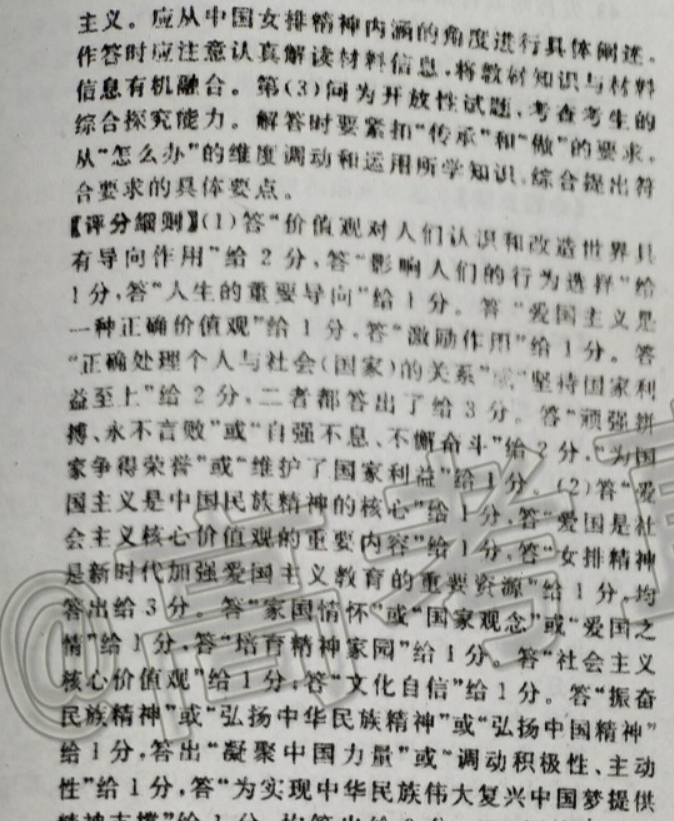 主义。应从中国女排精神内涵的角度进行具体阐述。
作答时应注意认真解读材料信息,将教材知识与材料
信息有机融合。第(3)问为开放性试题,考查考生的
综合探究能力。解答时要紧扣“传承”和“做”的要求,
从“怎么办”的维度调动和运用所学知识,综合提出符
合要求的具体要点。
【评分细则】(1)答“价值观对人们认识和改造世界具
有导向作用”给 2 分,答“影响人们的行为选择”给
1 分,答“人生的重要导向”给 1 分。答“爱国主义是
一种正确价值观”给 1 分,答“激励作用”给 1 分。答
“正确处理个人与社会(国家)的关系”或“坚持国家利
益至上”给 2 分,二者都答出了给 3 分。答“顽强拼
搏、永不言败”或“自强不息、不懈奋斗”给 2 分,“为国
家争得荣誉”或“维护了国家利益”给 1 分。(2)答“爱
国主义是中国民族精神的核心”给 1 分,答“爱国是社
会主义核心价值观的重要内容”给 1 分,答“女排精神
是新时代加强爱国主义教育的重要资源”给 1 分,均
答出给 3 分。答“家国情怀”或“国家观念”或“爱国之
情”给 1 分,答“培育精神家园”给 1 分。答“社会主义
核心价值观”给 1 分;答“文化自信”给 1 分。答“振奋
民族精神”或“弘扬中华民族精神”或“弘扬中国精神”
给 1 分,答出“凝聚中国力量”或“调动积极性、主动
性”给 1 分,答“为实现中华民族伟大复兴中国梦提供
@高考